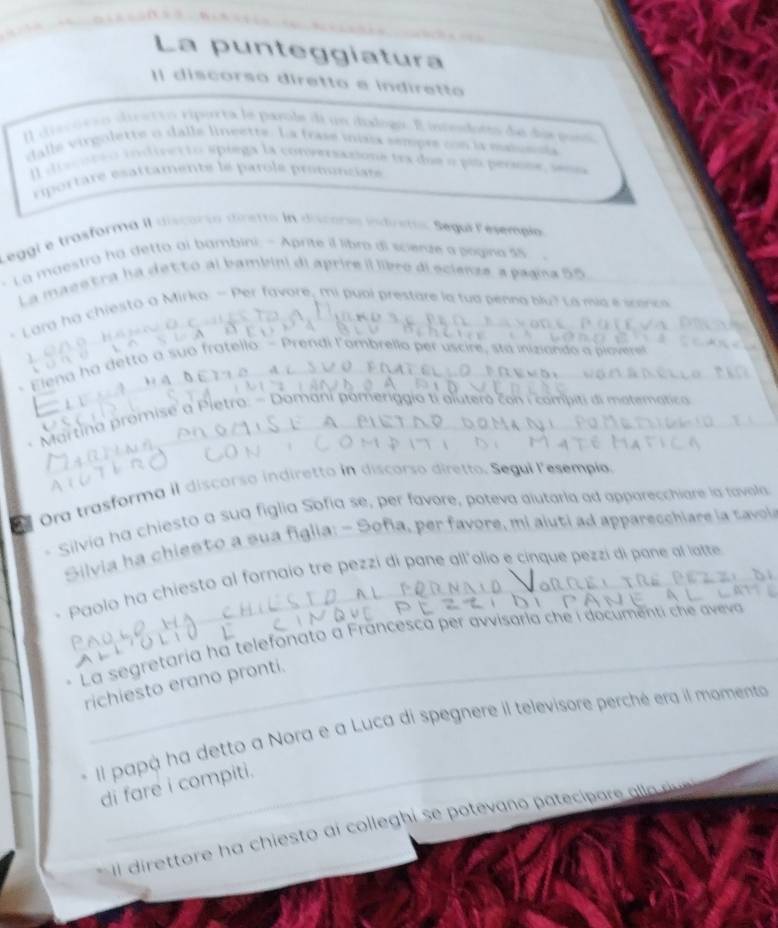 La punteggiatura
Il discorso diretto e indiretto
Il discorso diretto riporta le parole di un dialogo. È introdotto dai due punti,
dalle virgolette o dalle lineette. La frase inizia sempre con la maiuscola.
Il discorso indiretto spiega la conversazione tra due o più persone, senza
riportare esattamente le parole pronunciate.
Leggi e trasforma il discorso diretto in discorso indiretto. Segui l'esempio.
• La maestra ha detto ai bambini: – Aprite il libro di scienze a pagina 55.
La maestra ha detto ai bambini di aprire il libro di scienze a pagina 55.
• Lara ha chiesto a Mirko: – Per favore, mi puoi prestare la tua penna blu? La mia è scarica.
CHIESTO A MIRKO SE PER FAVORE POTEVA
LA SUA BLU PERCHE LA
• Elena ha detto a suo fratello: – Prendi l'ombrello per uscire, sta iniziando a piovere!
ELENA HA DETTO AL SUO FRATELLO PRENDI PER
USCIRE STA INIZIANDO A
• Martina promise a Pietro: – Domani pomeriggio ti aiuterò con i compiti di matematica.
MARTINA PROMISE A PIETRO DOMANI POMERIGGIO TI
AIUTERO CON I COMPITI DI MATEMATICA
Ora trasforma il discorso indiretto in discorso diretto. Segui l'esempio.
• Silvia ha chiesto a sua figlia Sofia se, per favore, poteva aiutarla ad apparecchiare la tavola.
Silvia ha chiesto a sua figlia: – Sofia, per favore, mi aiuti ad apparecchiare la tavola
• Paolo ha chiesto al fornaio tre pezzi di pane all'olio e cinque pezzi di pane al latte.
PAOLO HA CHIESTO AL FORNAIO VORREI TRE PEZZI DI
ALL'OLIO E CINQUE PEZZI DI PANE AL LATTE
• La segretaria ha telefonato a Francesca per avvisarla che i documenti che aveva
richiesto erano pronti.
• Il papà ha detto a Nora e a Luca di spegnere il televisore perché era il momento
di fare i compiti.
• Il direttore ha chiesto ai colleghi se potevano patecipare alla